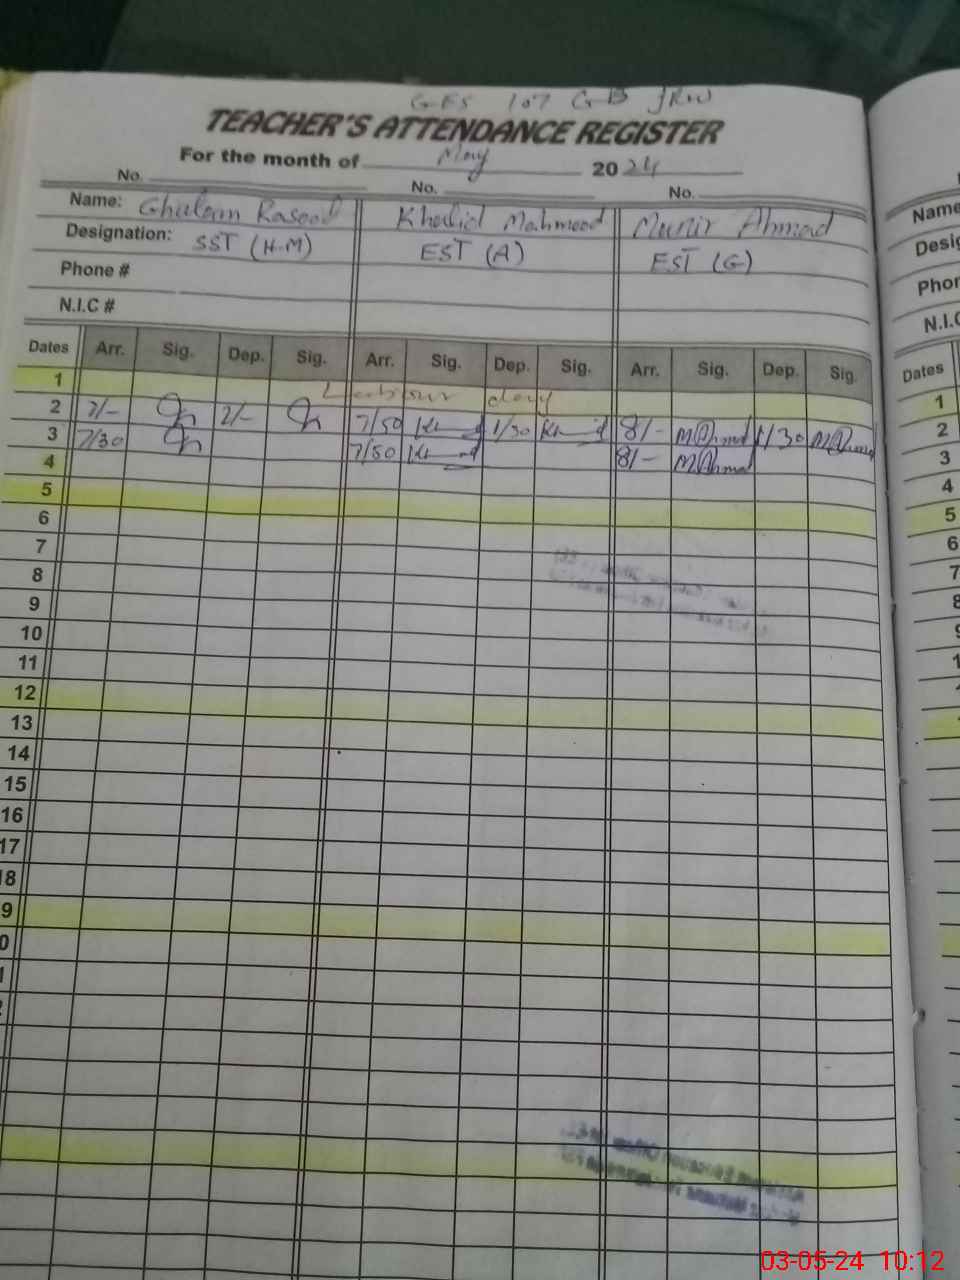 GES 107 GB JRW
TEACHER'S ATTENDANCE REGISTER
For the month of May 2024
No. No. No.
Name: Ghulam Rasool Khalid Mahmood Munir Ahmad
Designation: SST (H.M) EST (A) EST (G)
Phone #
N.I.C #
Dates Arr. Sig. Dep. Sig. Arr. Sig. Dep. Sig. Arr. Sig. Dep. Sig.
1 Labour day
2 7/- 2/- 7/50 1/30 8/- M Ahmad 1/30 M Ahmad
3 7/30 7/50 8/- M Ahmad
4
5
6
7
8
9
10
11
12
13
14
15
16
17
18
9
0
1
2
Name
Desig
Phon
N.I.C
Dates
1
2
3
4
5
6
7
8
9
03-05-24 10:12